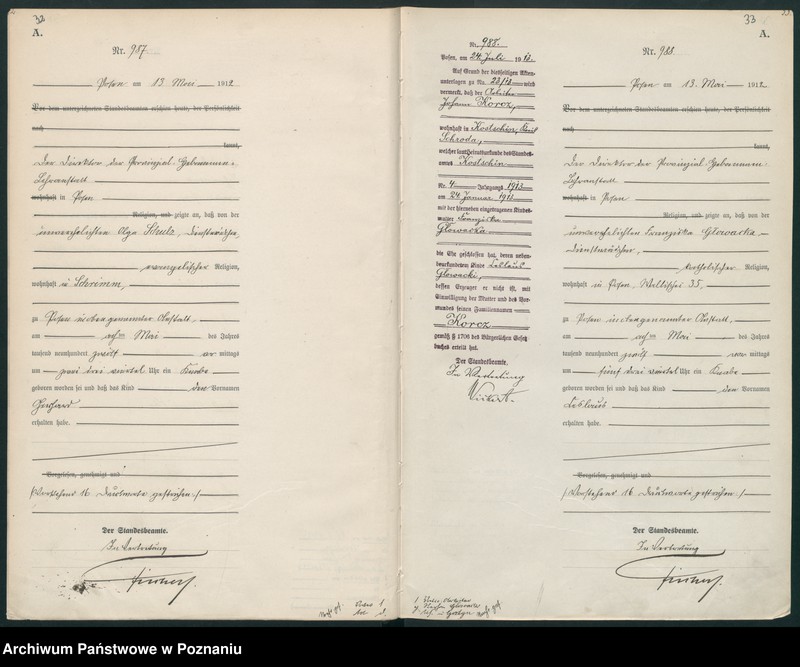 32
A.
Nr. 987
Posen am 13 Mai 1912
Vor dem unterzeichneten Standesbeamten erschien heute, der Persönlichkeit
nach
kannt,
Der Direktor der Provinzial-Hebammen-
Lehranstalt
wohnhaft in Posen
Religion, und zeigte an, daß von der
unverehelichten Olga Schulz, Dienstmädchen,
evangelischer Religion,
wohnhaft in Schrimm,
zu Posen in obengenannter Anstalt,
am achten Mai des Jahres
tausend neunhundert zwölf mittags
um drei viertel Uhr ein Knabe
geboren worden sei und daß das Kind den Vornamen
Gerhard
erhalten habe.
Vorgelesen, genehmigt und
/Vorstehend 16 Druckworte gestrichen./
Der Standesbeamte.
In Vertretung
Nr. 988.
Posen, am 24. Juli 1913.
Auf Grund der diesseitigen Akten-
unterlagen zu No. wird
vermerkt, daß der Arbeiter
Johann Korcz,
wohnhaft in Kostschin, Kreis
Schroda,
welcher laut Heiratsurkunde des Standes-
amtes Kostschin
Nr. 4 Jahrgangs 1913
am 24 Januar
mit der hierneben eingetragenen Kindes-
mutter Franziska
Glowacka
die Ehe geschlossen hat, deren neben-
beurkundetem Kinde Leslaus
Glowacki,
dessen Erzeuger er nicht ist, mit
Einwilligung der Mutter und des Vor-
mundes seinen Familiennamen
Korcz
gemäß § 1706 des Bürgerlichen Gesetz-
buches erteilt hat.
Der Standesbeamte.
In Vertretung
33
A.
Nr. 988
Posen am 13. Mai 1912
Vor dem unterzeichneten Standesbeamten erschien heute, der Persönlichkeit
nach
kannt,
Der Direktor der Provinzial-Hebammen-
Lehranstalt
wohnhaft in Posen
Religion, und zeigte an, daß von der
unverehelichten Franziska Glowacka,
Dienstmädchen,
katholischer Religion,
wohnhaft in Posen, Wallischei 35,
zu Posen in obengenannter Anstalt,
am achten Mai des Jahres
tausend neunhundert zwölf mittags
um fünf drei viertel Uhr ein Knabe
geboren worden sei und daß das Kind den Vornamen
Leslaus
erhalten habe.
Vorgelesen, genehmigt und
/Vorstehend 16 Druckworte gestrichen./
Der Standesbeamte.
In Vertretung
Archiwum Państwowe w Poznaniu